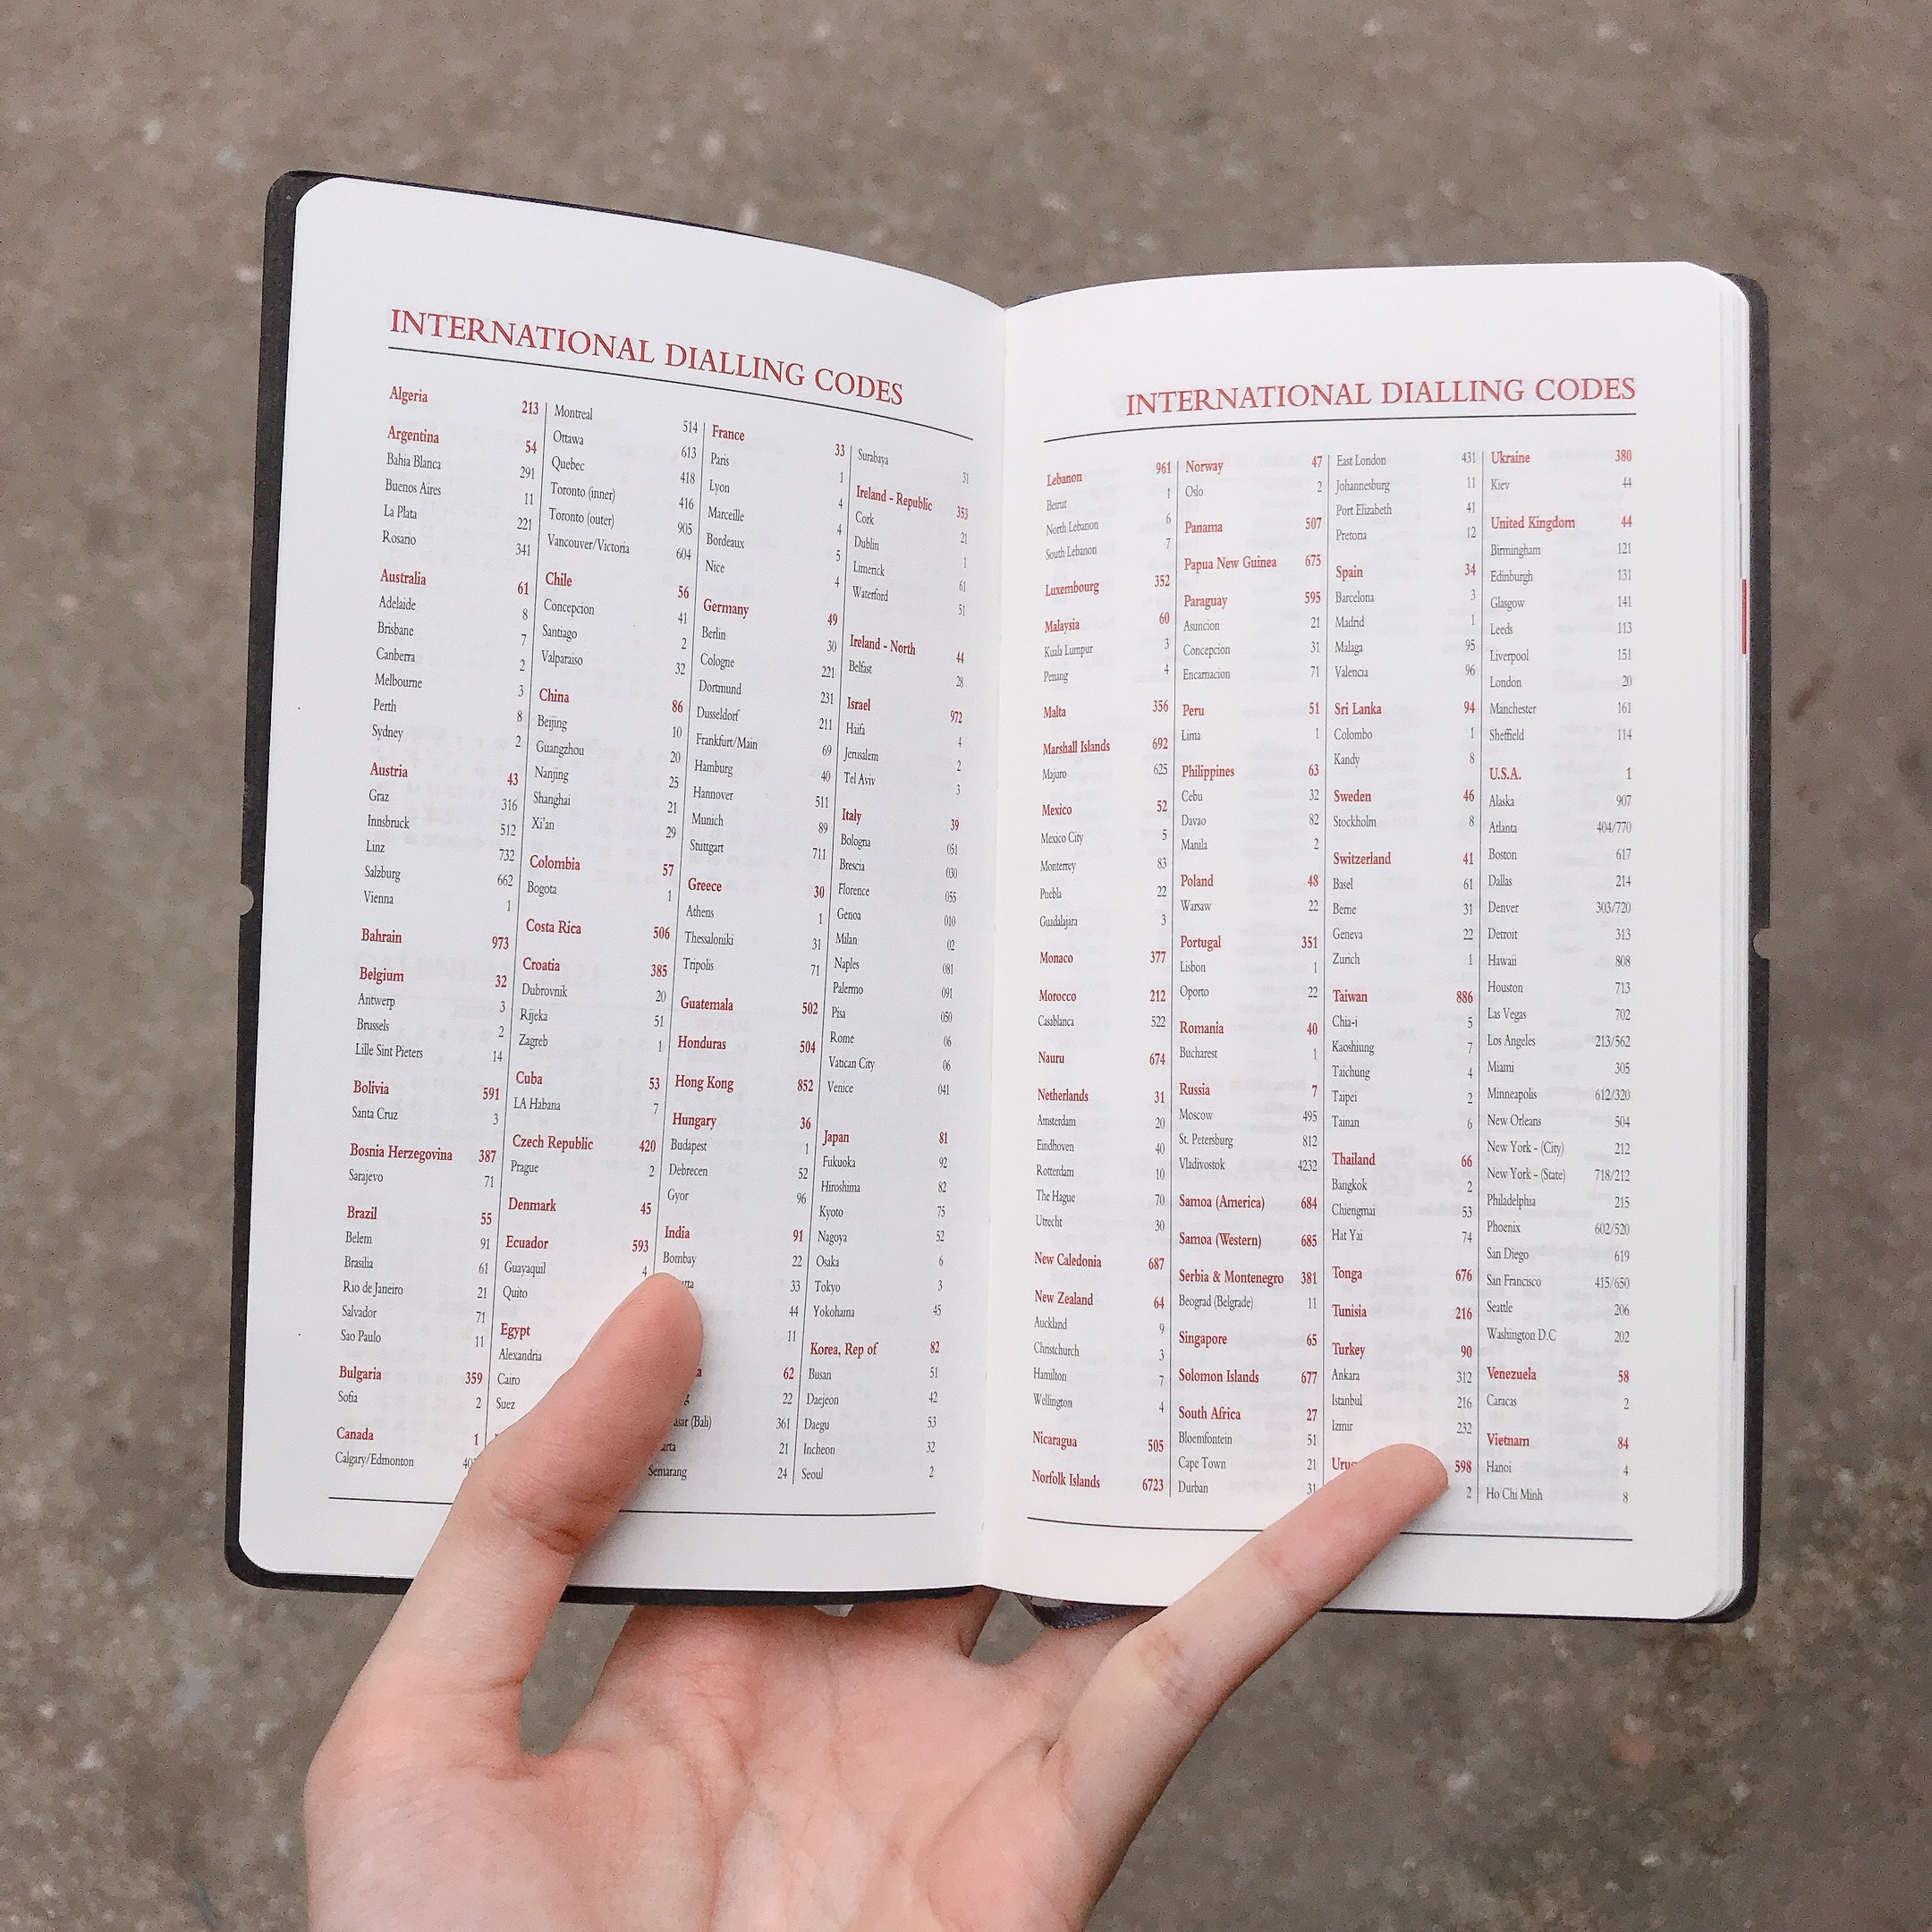 INTERNATIONAL DIALLING CODES
Algeria 213
Argentina 54
Bahia Blanca 291
Buenos Aires 11
La Plata 221
Rosario 341
Australia 61
Adelaide 8
Brisbane 7
Canberra 2
Melbourne 3
Perth 8
Sydney 2
Austria 43
Graz 316
Innsbruck 512
Linz 732
Salzburg 662
Vienna 1
Bahrain 973
Belgium 32
Antwerp 3
Brussels 2
Lille Sint Pieters 14
Bolivia 591
Santa Cruz 3
Bosnia Herzegovina 387
Sarajevo 71
Brazil 55
Belem 91
Brasilia 61
Rio de Janeiro 21
Salvador 71
Sao Paulo 11
Bulgaria 359
Sofia 2
Canada 1
Calgary/Edmonton
Montreal 514
Ottawa 613
Quebec 418
Toronto (inner) 416
Toronto (outer) 905
Vancouver/Victoria 604
Chile 56
Concepcion 41
Santiago 2
Valparaiso 32
China 86
Beijing 10
Guangzhou 20
Nanjing 25
Shanghai 21
Xi'an 29
Colombia 57
Bogota 1
Costa Rica 506
Croatia 385
Dubrovnik 20
Rijeka 51
Zagreb 1
Cuba 53
LA Habana 7
Czech Republic 420
Prague 2
Denmark 45
Ecuador 593
Guayaquil 4
Quito
Egypt
Alexandria
Cairo
Suez
France 33
Paris 1
Lyon 4
Marceille 4
Bordeaux 5
Nice 4
Germany 49
Berlin 30
Cologne 221
Dortmund 231
Dusseldorf 211
Frankfurt/Main 69
Hamburg 40
Hannover 511
Munich 89
Stuttgart 711
Greece 30
Athens 1
Thessaloniki 31
Tripolis 71
Guatemala 502
Honduras 504
Hong Kong 852
Hungary 36
Budapest 1
Debrecen 52
Gyor 96
India 91
Bombay 22
33
44
11
62
22
(Bali) 361
21
Semarang 24
Surabaya 31
Ireland - Republic 353
Cork 21
Dublin 1
Limerick 61
Waterford 51
Ireland - North 44
Belfast 28
Israel 972
Haifa 4
Jerusalem 2
Tel Aviv 3
Italy 39
Bologna 051
Brescia 030
Florence 055
Genoa 010
Milan 02
Naples 081
Palermo 091
Pisa 050
Rome 06
Vatican City 06
Venice 041
Japan 81
Fukuoka 92
Hiroshima 82
Kyoto 75
Nagoya 52
Osaka 6
Tokyo 3
Yokohama 45
Korea, Rep of 82
Busan 51
Daejeon 42
Daegu 53
Incheon 32
Seoul 2
INTERNATIONAL DIALLING CODES
Lebanon 961
Beirut 1
North Lebanon 6
South Lebanon 7
Luxembourg 352
Malaysia 60
Kuala Lumpur 3
Penang 4
Malta 356
Marshall Islands 692
Majuro 625
Mexico 52
Mexico City 5
Monterrey 83
Puebla 22
Guadalajara 3
Monaco 377
Morocco 212
Casablanca 522
Nauru 674
Netherlands 31
Amsterdam 20
Eindhoven 40
Rotterdam 10
The Hague 70
Utrecht 30
New Caledonia 687
New Zealand 64
Auckland 9
Christchurch 3
Hamilton 7
Wellington 4
Nicaragua 505
Norfolk Islands 6723
Norway 47
Oslo 2
Panama 507
Papua New Guinea 675
Paraguay 595
Asuncion 21
Concepcion 31
Encarnacion 71
Peru 51
Lima 1
Philippines 63
Cebu 32
Davao 82
Manila 2
Poland 48
Warsaw 22
Portugal 351
Lisbon 1
Oporto 22
Romania 40
Bucharest 1
Russia 7
Moscow 495
St. Petersburg 812
Vladivostok 4232
Samoa (America) 684
Samoa (Western) 685
Serbia & Montenegro 381
Beograd (Belgrade) 11
Singapore 65
Solomon Islands 677
South Africa 27
Bloemfontein 51
Cape Town 21
Durban 31
East London 431
Johannesburg 11
Port Elizabeth 41
Pretoria 12
Spain 34
Barcelona 3
Madrid 1
Malaga 95
Valencia 96
Sri Lanka 94
Colombo 1
Kandy 8
Sweden 46
Stockholm 8
Switzerland 41
Basel 61
Berne 31
Geneva 22
Zurich 1
Taiwan 886
Chia-i 5
Kaoshiung 7
Taichung 4
Taipei 2
Tainan 6
Thailand 66
Bangkok 2
Chiengmai 53
Hat Yai 74
Tonga 676
Tunisia 216
Turkey 90
Ankara 312
Istanbul 216
Izmir 232
598
2
Ukraine 380
Kiev 44
United Kingdom 44
Birmingham 121
Edinburgh 131
Glasgow 141
Leeds 113
Liverpool 151
London 20
Manchester 161
Sheffield 114
U.S.A. 1
Alaska 907
Atlanta 404/770
Boston 617
Dallas 214
Denver 303/720
Detroit 313
Hawaii 808
Houston 713
Las Vegas 702
Los Angeles 213/562
Miami 305
Minneapolis 612/320
New Orleans 504
New York - (City) 212
New York - (State) 718/212
Philadelphia 215
Phoenix 602/520
San Diego 619
San Francisco 415/650
Seattle 206
Washington D.C 202
Venezuela 58
Caracas 2
Vietnam 84
Hanoi 4
Ho Chi Minh 8